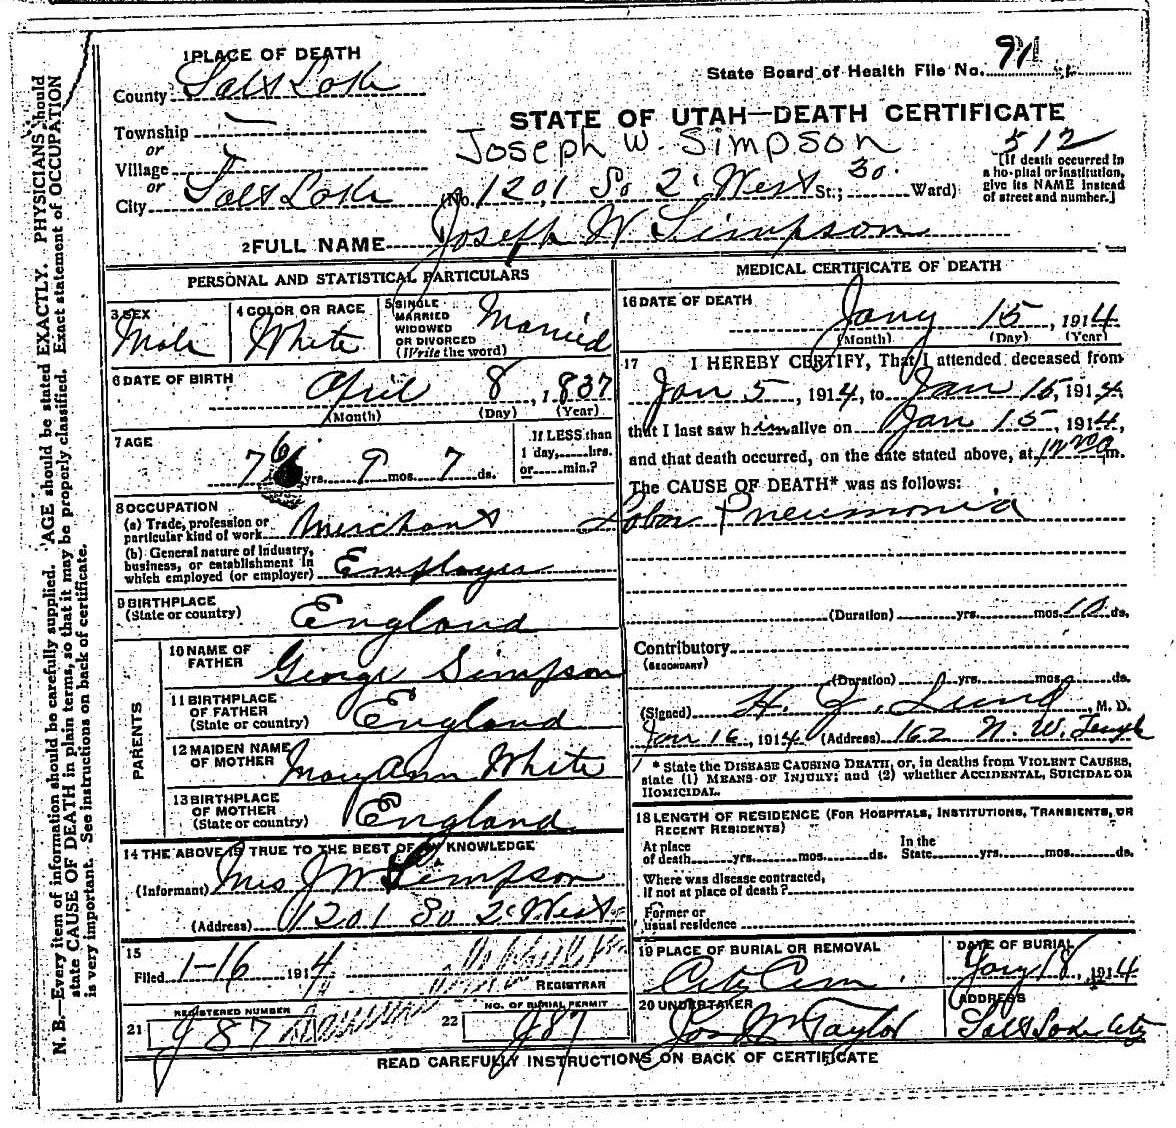 1 PLACE OF DEATH
County Salt Lake
Township
or
Village
or
City Salt Lake
State Board of Health File No. 91
STATE OF UTAH—DEATH CERTIFICATE
Joseph W. Simpson
512
(No. 1201 So 2d West St.; 30. Ward)
[If death occurred in a hospital or institution, give its NAME instead of street and number.]
2 FULL NAME Joseph W Simpson
PERSONAL AND STATISTICAL PARTICULARS
3 SEX
Male
4 COLOR OR RACE
White
5 SINGLE
MARRIED
WIDOWED
OR DIVORCED
(Write the word)
Married
6 DATE OF BIRTH
April 8, 1837
(Month) (Day) (Year)
7 AGE
76 yrs. 9 mos. 7 ds.
If LESS than
1 day, hrs.
or min.?
8 OCCUPATION
(a) Trade, profession or
particular kind of work Merchant
(b) General nature of industry,
business, or establishment in
which employed (or employer) Employer
9 BIRTHPLACE
(State or country) England
PARENTS
10 NAME OF
FATHER George Simpson
11 BIRTHPLACE
OF FATHER
(State or country) England
12 MAIDEN NAME
OF MOTHER Mary Ann White
13 BIRTHPLACE
OF MOTHER
(State or country) England
14 THE ABOVE IS TRUE TO THE BEST OF MY KNOWLEDGE
(Informant) Mrs J W Simpson
(Address) 1201 So 2d West
15
Filed 1-16 1914
REGISTRAR
21 REGISTERED NUMBER
J 87
22 NO. OF BURIAL PERMIT
J87
MEDICAL CERTIFICATE OF DEATH
16 DATE OF DEATH
Jany 15, 1914
(Month) (Day) (Year)
17 I HEREBY CERTIFY, That I attended deceased from
Jan 5, 1914, to Jan 15, 1914,
that I last saw him alive on Jan 15 1914,
and that death occurred, on the date stated above, at m.
The CAUSE OF DEATH* was as follows:
Lobar Pneumonia
(Duration) yrs. mos. 10 ds.
Contributory
(SECONDARY)
(Duration) yrs. mos. ds.
(Signed) H. , M. D.
Jan 16, 1914 (Address) 162 N. W. Temple
* State the DISEASE CAUSING DEATH, or, in deaths from VIOLENT CAUSES,
state (1) MEANS OF INJURY; and (2) whether ACCIDENTAL, SUICIDAL OR
HOMICIDAL.
18 LENGTH OF RESIDENCE (FOR HOSPITALS, INSTITUTIONS, TRANSIENTS, OR
RECENT RESIDENTS)
At place In the
of death yrs. mos. ds. State yrs. mos. ds.
Where was disease contracted,
if not at place of death?
Former or
usual residence
19 PLACE OF BURIAL OR REMOVAL
City Cem.
DATE OF BURIAL
Jany 18, 1914
20 UNDERTAKER
Jos Wm Taylor
ADDRESS
Salt Lake City
READ CAREFULLY INSTRUCTIONS ON BACK OF CERTIFICATE
N. B.—Every item of information should be carefully supplied. AGE should be stated EXACTLY. PHYSICIANS should
state CAUSE OF DEATH in plain terms, so that it may be properly classified. Exact statement of OCCUPATION
is very important. See instructions on back of certificate.